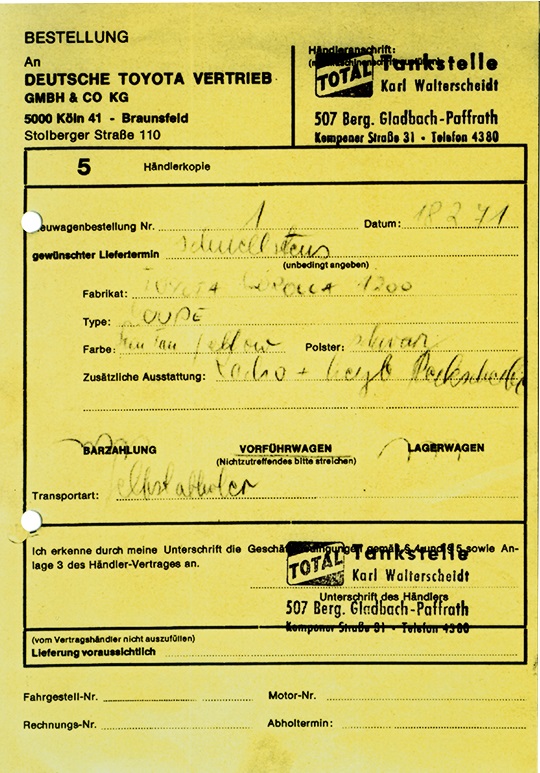 BESTELLUNG
An
DEUTSCHE TOYOTA VERTRIEB
GMBH & CO KG
5000 Köln 41 - Braunsfeld
Stolberger Straße 110
Händleranschrift:
TOTAL Tankstelle
Karl Walterscheidt
507 Berg. Gladbach-Paffrath
Kempener Straße 31 • Telefon 4380
5 Händlerkopie
Neuwagenbestellung Nr. 1 Datum: 18 2 71
gewünschter Liefertermin schnellstens
(unbedingt angeben)
Fabrikat: TOYOTA COROLLA 1200
Type: COUPE
Farbe: yellow Polster: schwarz
Zusätzliche Ausstattung: Radio + heizb
BARZAHLUNG VORFÜHRWAGEN LAGERWAGEN
(Nichtzutreffendes bitte streichen)
Transportart: Selbstabholer
Ich erkenne durch meine Unterschrift die Geschäftsbedingungen gemäß § 4 und § 5 sowie An-
lage 3 des Händler-Vertrages an.
TOTAL Tankstelle
Karl Walterscheidt
Unterschrift des Händlers
507 Berg. Gladbach-Paffrath
Kempener Straße 31 • Telefon 4380
(vom Vertragshändler nicht auszufüllen)
Lieferung voraussichtlich
Fahrgestell-Nr. Motor-Nr.
Rechnungs-Nr. Abholtermin: